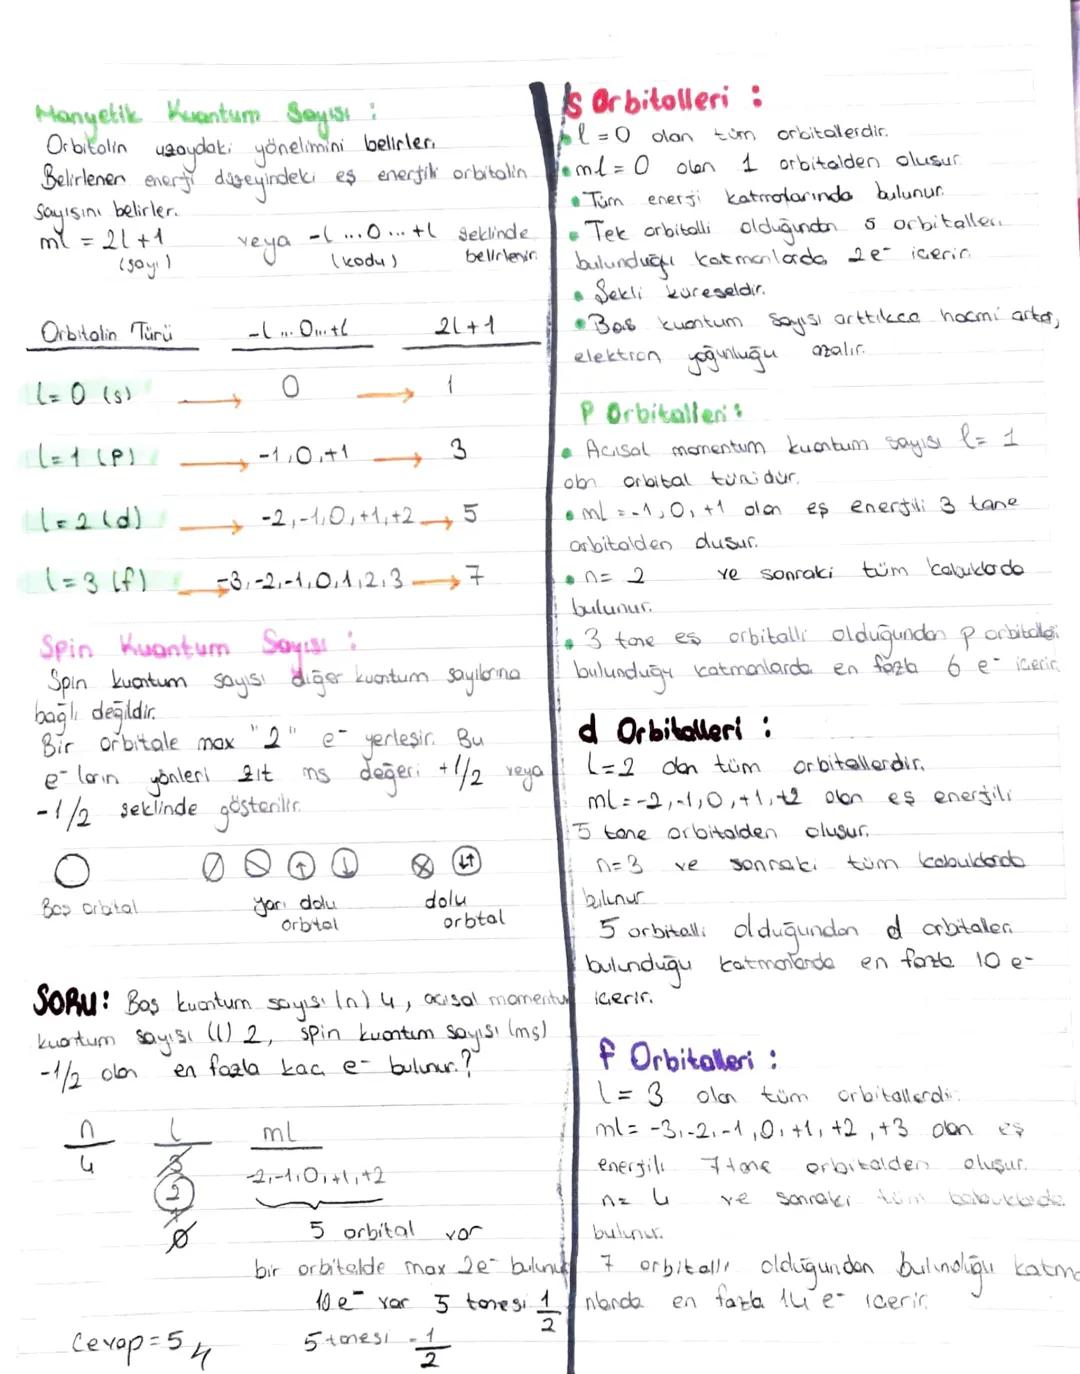 Manyetik Kuantum Sayısı :
Orbitalin uzaydaki yönelimini belirler.
Belirlenen enerji düzeyindeki eş enerjili orbitalin
sayısını belirler.
ml = 2l+1 veya -l ...0... +l şeklinde
(sayı) (kodu) belirlenir.
Orbitalin Türü -l ... 0... +l 2l+1
l=0 (s) → 0 → 1
l=1 (p) → -1,0,+1 → 3
l=2 (d) → -2,-1,0,+1,+2 → 5
l=3 (f) → -3,-2,-1,0,1,2,3 → 7
Spin Kuantum Sayısı :
Spin kuantum sayısı diğer kuantum sayılarına
bağlı değildir.
Bir orbitale max "2" e- yerleşir. Bu
e- ların yönleri zıt ms değeri +1/2 veya
-1/2 şeklinde gösterilir.
Boş orbital yarı dolu dolu
orbital orbtal
SORU: Baş kuantum sayısı (n) 4, açısal momentum
kuantum sayısı (l) 2, spin kuantum sayısı (ms)
-1/2 olan en fazla kaç e- bulunur.?
n l ml
4 3 -2,-1,0,+1,+2
2
1
0 5 orbital var
bir orbitalde max 2e- bulunur
10 e- var 5 tanesi 1/2
Cevap = 5 5 tanesi -1/2
S Orbitalleri :
l=0 olan tüm orbitallerdir.
• ml=0 olan 1 orbitalden oluşur.
• Tüm enerji katmanlarında bulunur.
• Tek orbitalli olduğundan s orbitalleri
bulunduğu katmanlarda 2e- içerir.
• Şekli küreseldir.
• Baş kuantum sayısı arttıkça hacmi artar,
elektron yoğunluğu azalır.
P Orbitalleri :
• Açısal momentum kuantum sayısı l= 1
olan orbital türüdür.
• ml = -1,0,+1 olan eş enerjili 3 tane
orbitalden oluşur.
• n= 2 ve sonraki tüm kabuklarda
bulunur.
• 3 tane eş orbitalli olduğundan p orbitalleri
bulunduğu katmanlarda en fazla 6 e- içerir.
d Orbitalleri :
l=2 olan tüm orbitallerdir.
ml=-2,-1,0,+1,+2 olan eş enerjili
5 tane orbitalden oluşur.
n=3 ve sonraki tüm kabuklarda
bulunur
5 orbitalli olduğundan d orbitalleri
bulunduğu katmanlarda en fazla 10 e-
içerir.
f Orbitalleri :
l = 3 olan tüm orbitallerdir.
ml= -3,-2,-1,0,+1,+2,+3 olan eş
enerjili 7 tane orbitalden oluşur.
n= 4 ve sonraki tüm kabuklarda
bulunur.
7 orbitalli olduğundan bulunduğu katma
nlarda en fazla 14 e- içerir.